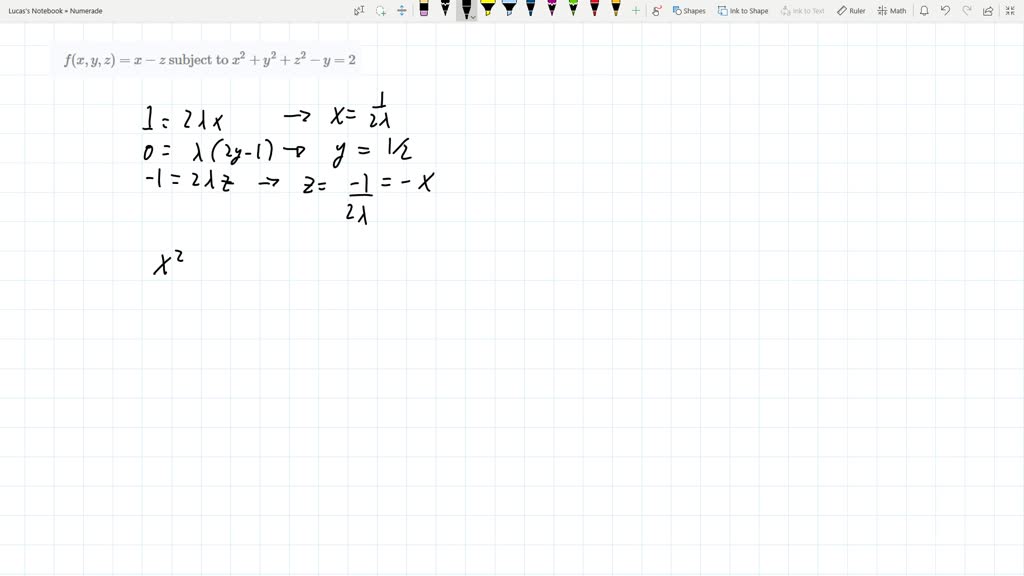 Lucas's Notebook » Numerade
Shapes Ink to Shape Ink to Text Ruler Math
f(x, y, z) = x − z subject to x² + y² + z² − y = 2
1 = 2λx → x = 1/2λ
0 = λ(2y-1) → y = 1/2
-1 = 2λz → z = -1/2λ = -x
x²